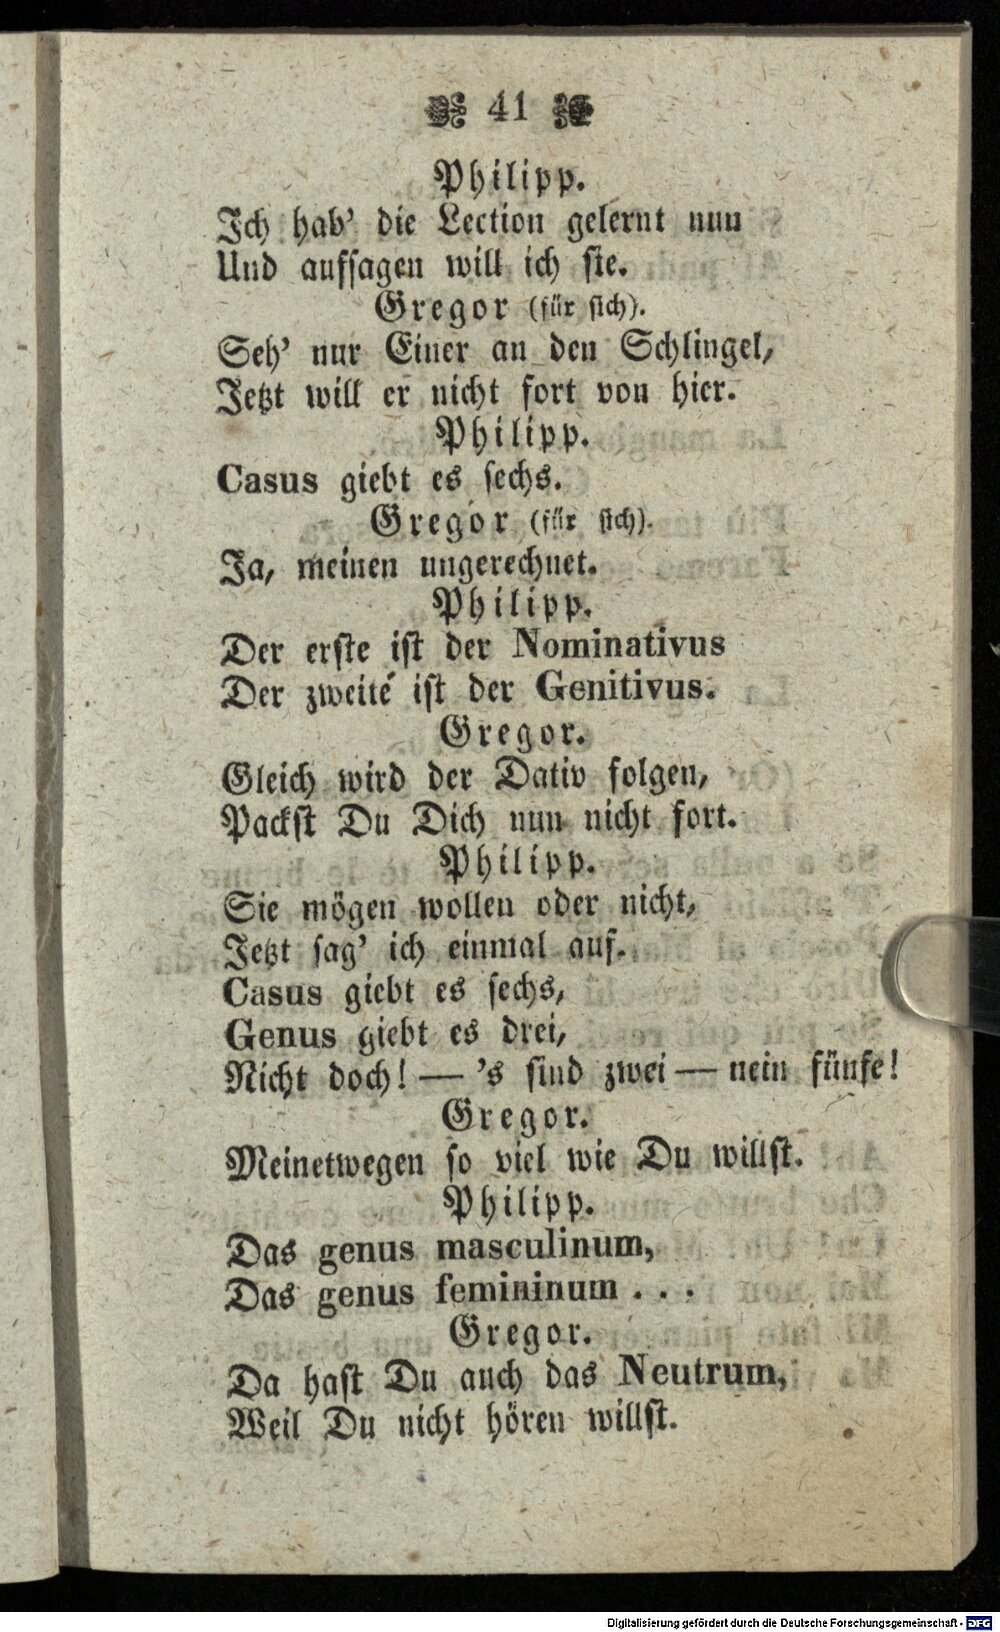 41
Philipp.
Ich hab' die Lection gelernt nun
Und aufsagen will ich sie.
Gregor (für sich).
Seh' nur Einer an den Schlingel,
Jetzt will er nicht fort von hier.
Philipp.
Casus giebt es sechs.
Gregor (für sich).
Ja, meinen ungerechnet.
Philipp.
Der erste ist der Nominativus
Der zweite ist der Genitivus.
Gregor.
Gleich wird der Dativ folgen,
Packst Du Dich nun nicht fort.
Philipp.
Sie mögen wollen oder nicht,
Jetzt sag' ich einmal auf.
Casus giebt es sechs,
Genus giebt es drei,
Nicht doch! — 's sind zwei — nein fünfe!
Gregor.
Meinetwegen so viel wie Du willst.
Philipp.
Das genus masculinum,
Das genus femininum . . .
Gregor.
Da hast Du auch das Neutrum,
Weil Du nicht hören willst.
Digitalisierung gefördert durch die Deutsche Forschungsgemeinschaft - DFG